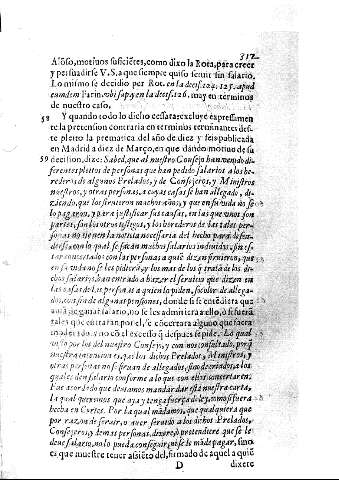 312
Alõso, motiuos suficiẽtes, como dixo la Rota, para creer
y persuadirse V.S. a que siempre quiso seruir sin salario.
Lo mismo se decidio per Rot. en la decis. 124. 125. apud
eundem Farin. vbi sup. y en la decis. 126. muy en terminos
de nuestro caso.
58 Y quando todo lo dicho cessara: excluye expressamen
te la pretension contraria en terminos terminantes des-
te pleito la prematica del año de diez y seis publicada
en Madrid a diez de Março, en que dando motiuo de su
59 decision, dize: Sabed, que al nuestro Consejo han venido di-
ferentes pleitos de personas que han pedido salarios a los he-
rederos de algunos Prelados, y de Consejeros, y Ministros
nuestros, y otras personas, a cuyas casas se han allegado, di-
ziendo, que los siruieron muchos años, y que en su vida no se
lo pagaron, y para justificar sus causas, en las que vnos son
partes, son otros testigos, y los herederos de las tales per-
sonas no tienen la noticia necessaria del hecho para defen-
derse, con lo qual se sacan muchos salarios indiuidos, sin es-
tar concertados con las personas a quiẽ dizen siruieron, que
en su vida no se los pidierã, y los mas de los q̃ tratã de los di-
chos salarios, han entrado a hazer el seruicio que dizen en
las casas de las personas a quien lo piden, so color de allega-
dos, con fin de algunas pensiones, donde si se entẽdiera que
auiã de ganar salario, no se les admitiera a ello, o si fuerã
tales que entraran por el, se cõcertara alguno que fuera
moderado, y no cõ el excesso q̃ despues se pide. Lo qual
visto por los del nuestro Consejo, y con nos consultado, porq̃
nuestra intenciõ es, q̃ los dichos Prelados, Ministros, y
otras personas no se siruan de allegados, sino de criados, a los
quales den salario conforme a lo que con ellos concertaren.
Fue acordado que deuiamos mandar dar esta nuestra carta,
la qual queremos que aya y tẽga fuerça de ley, como si fuera
hecha en Cortes. Por la qual mãdamos, que qualquiera que
por razon de seruir, o auer seruido a los dichos Prelados,
Consejeros, y demas personas, dixere, o pretendiere que se le
deue salario, no lo pueda conseguir, ni se le mãde pagar, sino
es que mostrare tener assiẽto del, firmado de aquel a quiẽ
D dixere